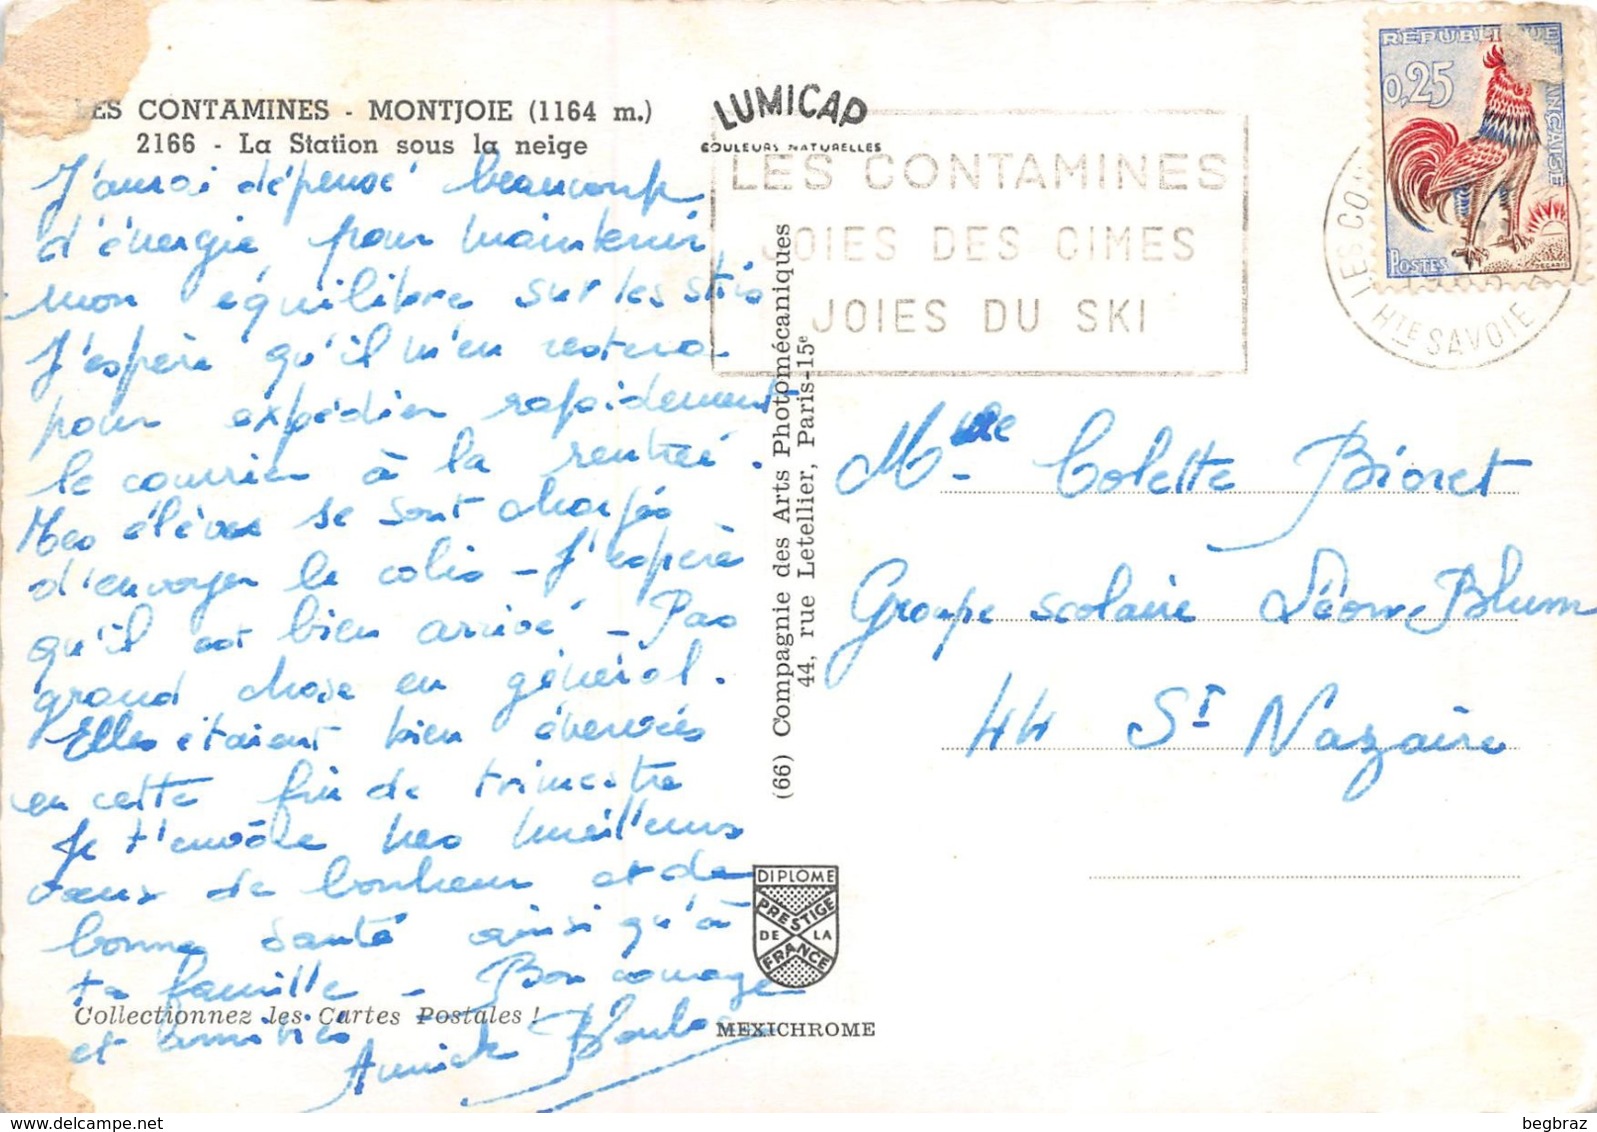 LES CONTAMINES - MONTJOIE (1164 m.)
2166 - La Station sous la neige
LUMICAP
COULEURS NATURELLES
LES CONTAMINES
JOIES DES CIMES
JOIES DU SKI
REPUBLIQUE FRANÇAISE
0,25
POSTES
DECARIS
LES CON
HTE SAVOIE
J'aurai dépensé beaucoup
d'énergie pour maintenir
mon équilibre sur les skis
J'espère qu'il m'en restera
pour expédier rapidement
le courrier à la rentrée.
Mes élèves se sont chargés
d'envoyer le colis - J'espère
qu'il est bien arrivé - Pas
grand chose en général.
Elles étaient bien énervées
en cette fin de trimestre
Je t'envoie mes meilleurs
vœux de bonheur et de
bonne santé ainsi qu'à
ta famille - Bon courage
et amitiés
Annick
Collectionnez les Cartes Postales !
(66) Compagnie des Arts Photomécaniques
44, rue Letellier, Paris-15e
DIPLOME
PRESTIGE
DE LA
FRANCE
MEXICHROME
Mlle Colette Bioret
Groupe scolaire Léon Blum
44 St Nazaire
begbraz